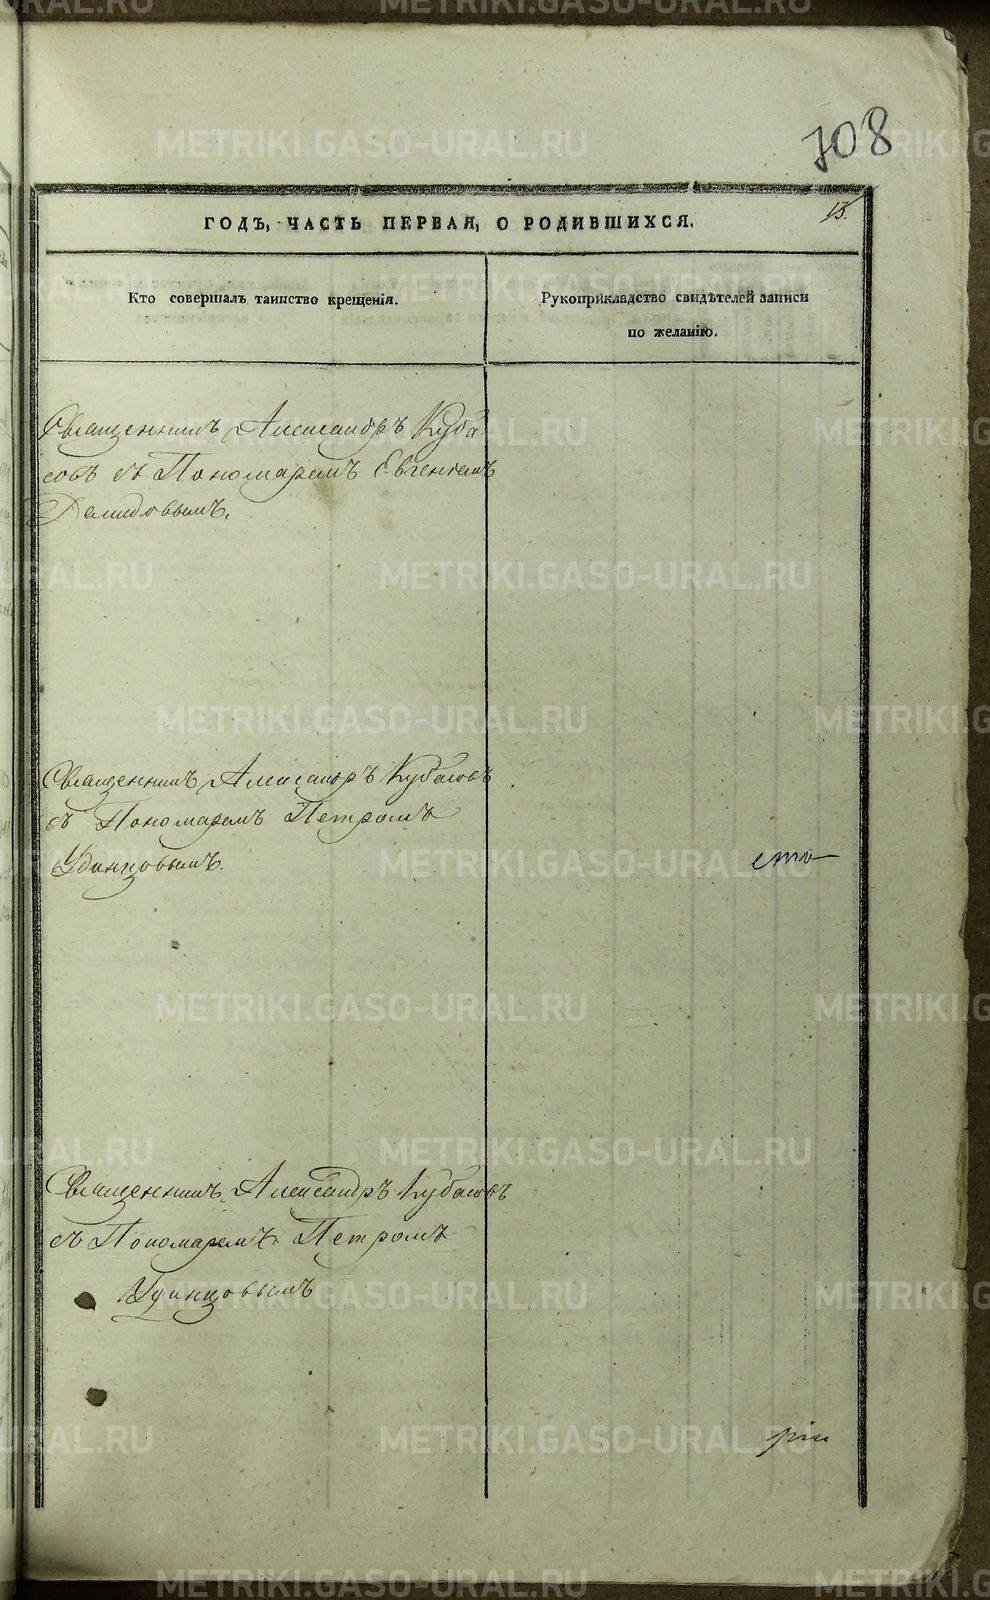 708
13.
ГОДЪ, ЧАСТЬ ПЕРВАЯ, О РОДИВШИХСЯ.
Кто совершалъ таинство крещенія.
Рукоприкладство свидѣтелей записи
по желанію.
Священникъ Александръ Куба
совъ съ Пономаремъ Евгеніемъ
Демидовымъ.
Священникъ Александръ Кубасовъ
съ Пономаремъ Петромъ
Удинцовымъ.
Священникъ Александръ Кубасовъ
съ Пономаремъ Петромъ
Удинцовымъ
METRIKI.GASO-URAL.RU